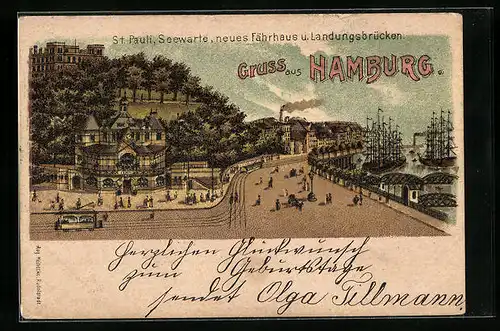 St. Pauli, Seewarte, neues Fährhaus u. Landungsbrücken.
Gruss aus HAMBURG a.
Herzlichen Glückwunsch
zum Geburtstage
sendet Olga Tillmann